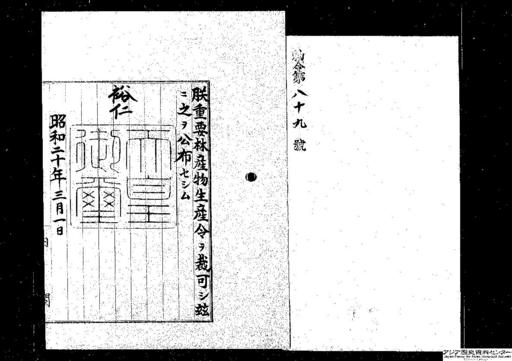 勅令第八十九號
朕重要林産物生産令ヲ裁可シ茲
ニ之ヲ公布セシム
裕仁
天皇御璽
昭和二十年三月一日
内閣
アジア歴史資料センター